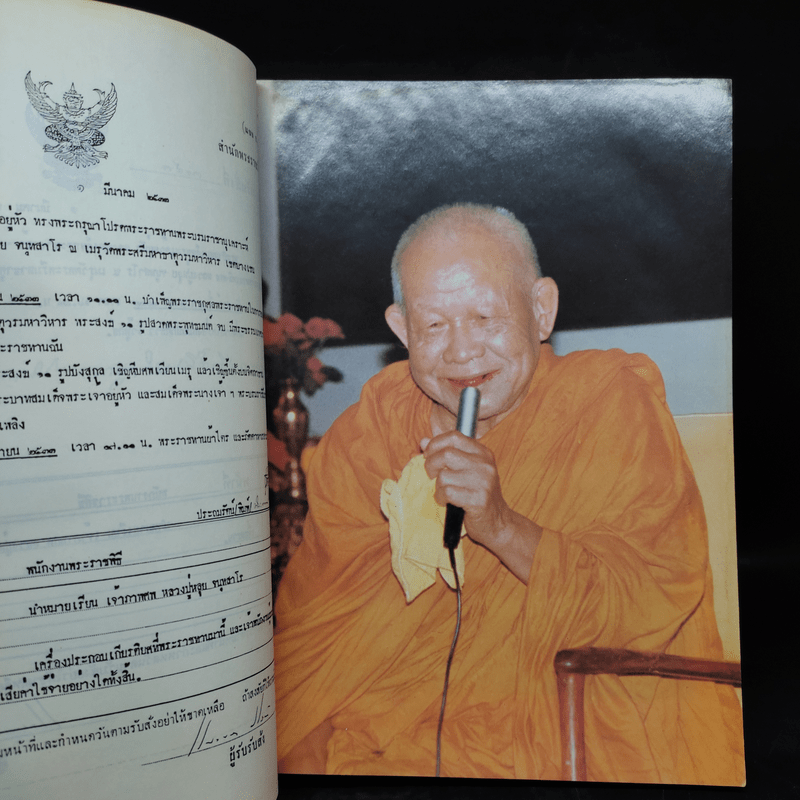 สำนักพระราช
๑ มีนาคม ๒๕๓๓
อยู่หัว ทรงพระกรุณาโปรดพระราชทานพระบรมราชานุเคราะห์
ย จนฺทสาโร ณ เมรุวัดพระศรีมหาธาตุวรมหาวิหาร เขตบางเขน
น ๒๕๓๓ เวลา ๑๑.๑๑ น. บำเพ็ญพระราชกุศลพระราชทาน
ตุวรมหาวิหาร พระสงฆ์ ๑๑ รูปสวดพระพุทธมนต์ จบ
ะราชทานฉัน
ะสงฆ์ ๑๑ รูปบังสุกุล เชิญหีบศพเวียนเมรุ แล้วเชิญขึ้น
ะบาทสมเด็จพระเจ้าอยู่หัว และสมเด็จพระนางเจ้า ฯ
เพลิง
ายน ๒๕๓๓ เวลา ๑๗.๑๑ น. พระราชทานผ้าไตร
ประณมรัตน์/พิมพ์/
พนักงานพระราชพิธี
นำหมายเรียน เจ้าภาพศพ หลวงปู่หลุย จนฺทสาโร
เครื่องประกอบเกียรติยศที่พระราชทานมานี้ และเจ้าพนักงาน
เสียค่าใช้จ่ายอย่างใดทั้งสิ้น.
มหน้าที่และกำหนดวันตามรับสั่งอย่าให้ขาดเหลือ
ผู้รับรับสั่ง